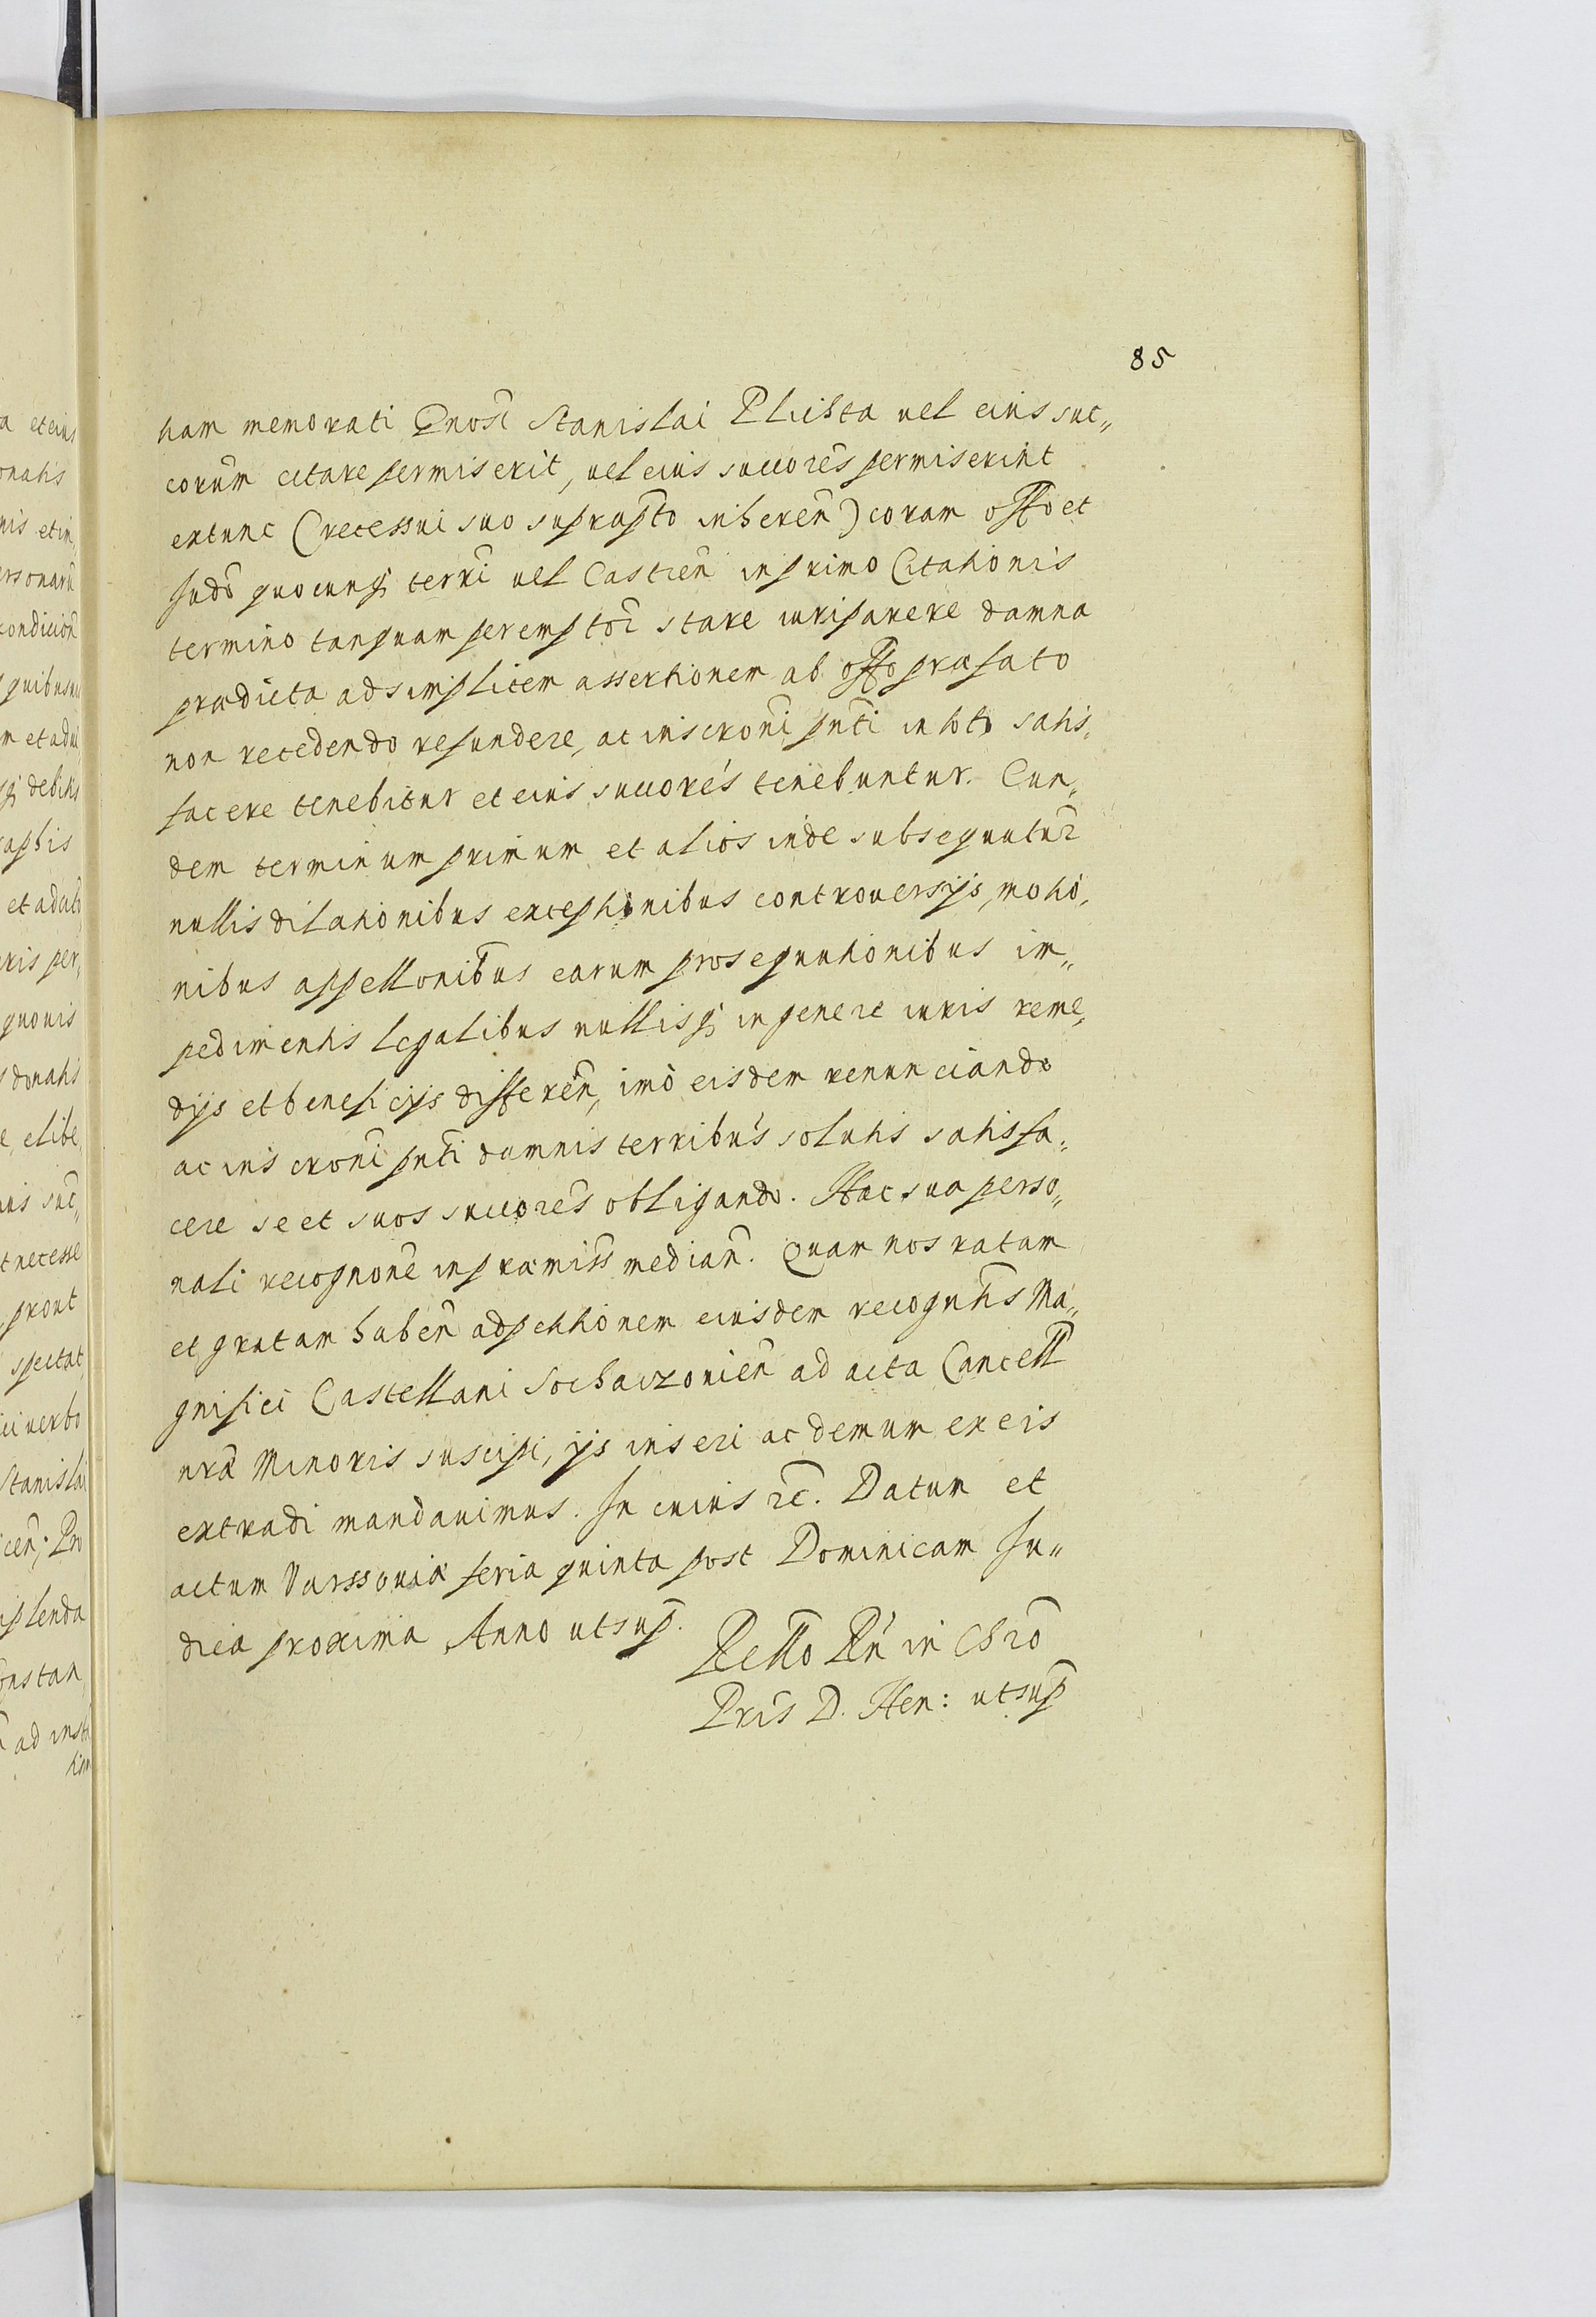 85
tiam memorati Gnosi Stanislai Plichta uel eius suc„
corum citare permiserit, uel eius succores permiserint
extunc (recessui suo suprapto inheren) coram offo et
Judo quocunq terri uel Castren in primo Citationis
termino tanquam peremptor stare iuri parere damna
prædicta ad simplicem assertionem ab offo præfato
non recedendo refundere, ac inscroni pnti in toto satis„
facere tenebitur et eius succores tenebuntur. Eun„
dem terminum primum et alios inde subsequutur
nullis dilationibus exceptionibus controuersijs, motio„
nibus appellonibus earum prosequutionibus im„
pedimentis legalibus nullisq in genere iuris reme„
dijs et beneficijs differen, imò eisdem renunciando
ac inscroni pnti damnis terribus solutis satisfa„
cere se et suos succores obligando. Hac sua perso„
nali recognone in præmiss median. Quam nos ratam
et gratam haben ad petitionem eiusdem recogntis Ma„
gnifici Castellani Sochaczouien ad acta Cancell
nræ Minoris suscipi, ijs inseri ac demum ex eis
extradi mandauimus. In cuius rc. Datum et
actum Varssouiæ feria quinta post Dominicam Iu„
dica proxima Anno ut sup.
Rello Rn in Chro
Pris D. Hen: ut sup